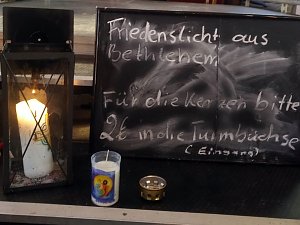 Friedenslicht aus
Bethlehem
Für die Kerzen bitte
2€ in die Turmbüchse
(Eingang)